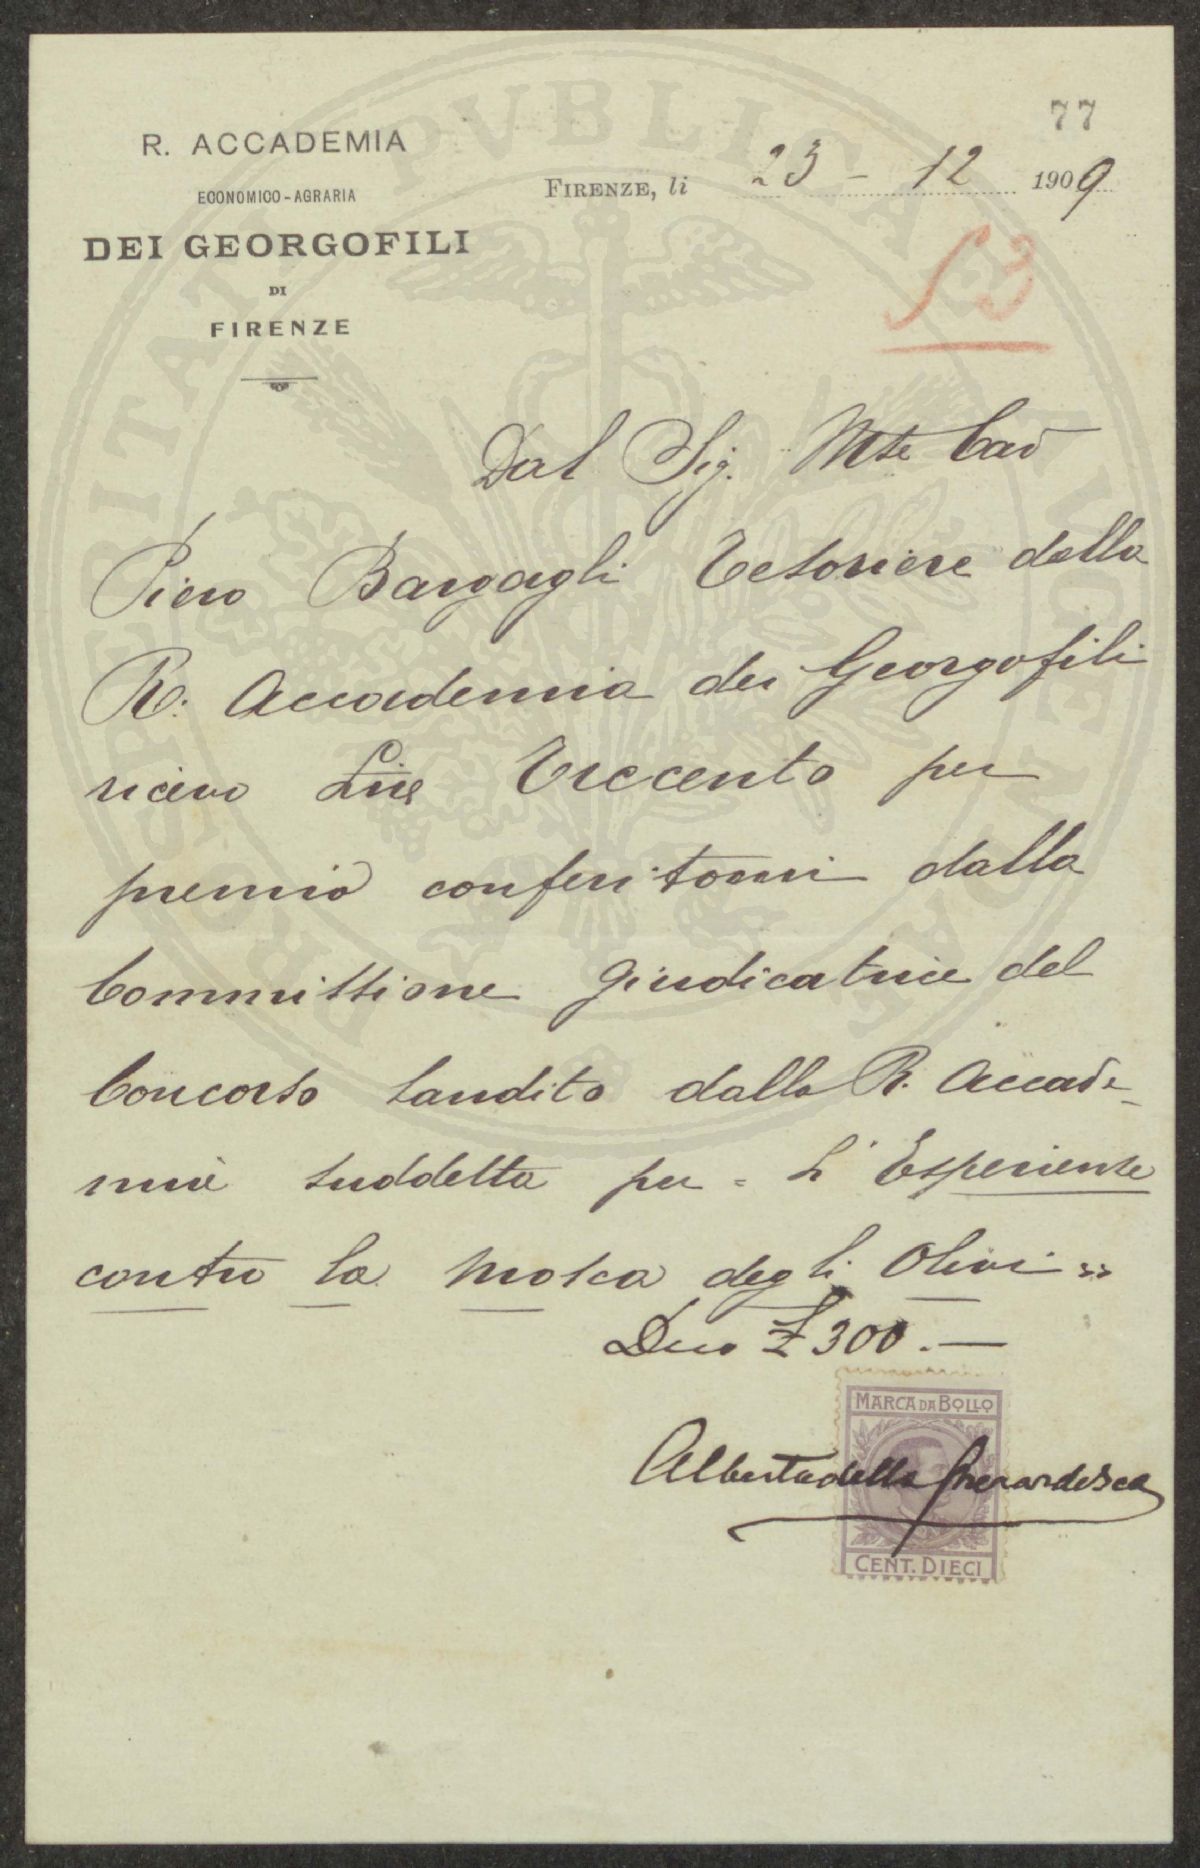 77
R. ACCADEMIA
ECONOMICO-AGRARIA
DEI GEORGOFILI
DI
FIRENZE
FIRENZE, li 23 - 12 1909
53
Dal Sig. Mse Cav
Piero Bargagli Tesoriere della
R. Accademia dei Georgofili
ricevo Lire Trecento per
premio conferitomi dalla
Commissione giudicatrice del
Concorso bandito dalla R. Accade-
mia suddetta per = L'Esperienze
contro la Mosca degli Olivi =
Dico £ 300.—
MARCA DA BOLLO
Alberto della Gherardesca
CENT. DIECI
PROSPERITATI PVBLICAE AVGENDAE